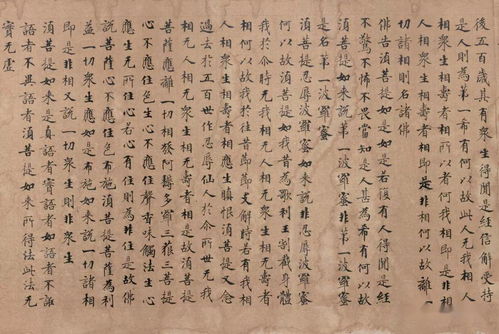 後五百歲其有眾生得聞是經信解受持
是人則為第一希有何以故此人无我相人
相眾生相壽者相所以者何我相即是非相
人相眾生相壽者相即是非相何以故離一
切諸相則名諸佛
佛告須菩提如是如是若復有人得聞是經
不驚不怖不畏當知是人甚為希有何以故
須菩提如來說第一波羅蜜非第一波羅蜜
是名第一波羅蜜
須菩提忍辱波羅蜜如來說非忍辱波羅蜜
何以故須菩提如我昔為歌利王割截身體
我於尒時无我相无人相无眾生相无壽者
相何以故我於往昔節節支解時若有我相
人相眾生相壽者相應生瞋恨須菩提又念
過去於五百世作忍辱仙人於尒所世无我
相无人相无眾生相无壽者相是故須菩提
菩薩應離一切相發阿耨多羅三藐三菩提
心不應住色生心不應住聲香味觸法生心
應生无所住心若心有住則為非住是故佛
說菩薩心不應住色布施須菩提菩薩為利
益一切眾生應如是布施如來說一切諸相
即是非相又說一切眾生則非眾生
須菩提如來是真語者實語者如語者不誑
語者不異語者須菩提如來所得法此法无
實无虛